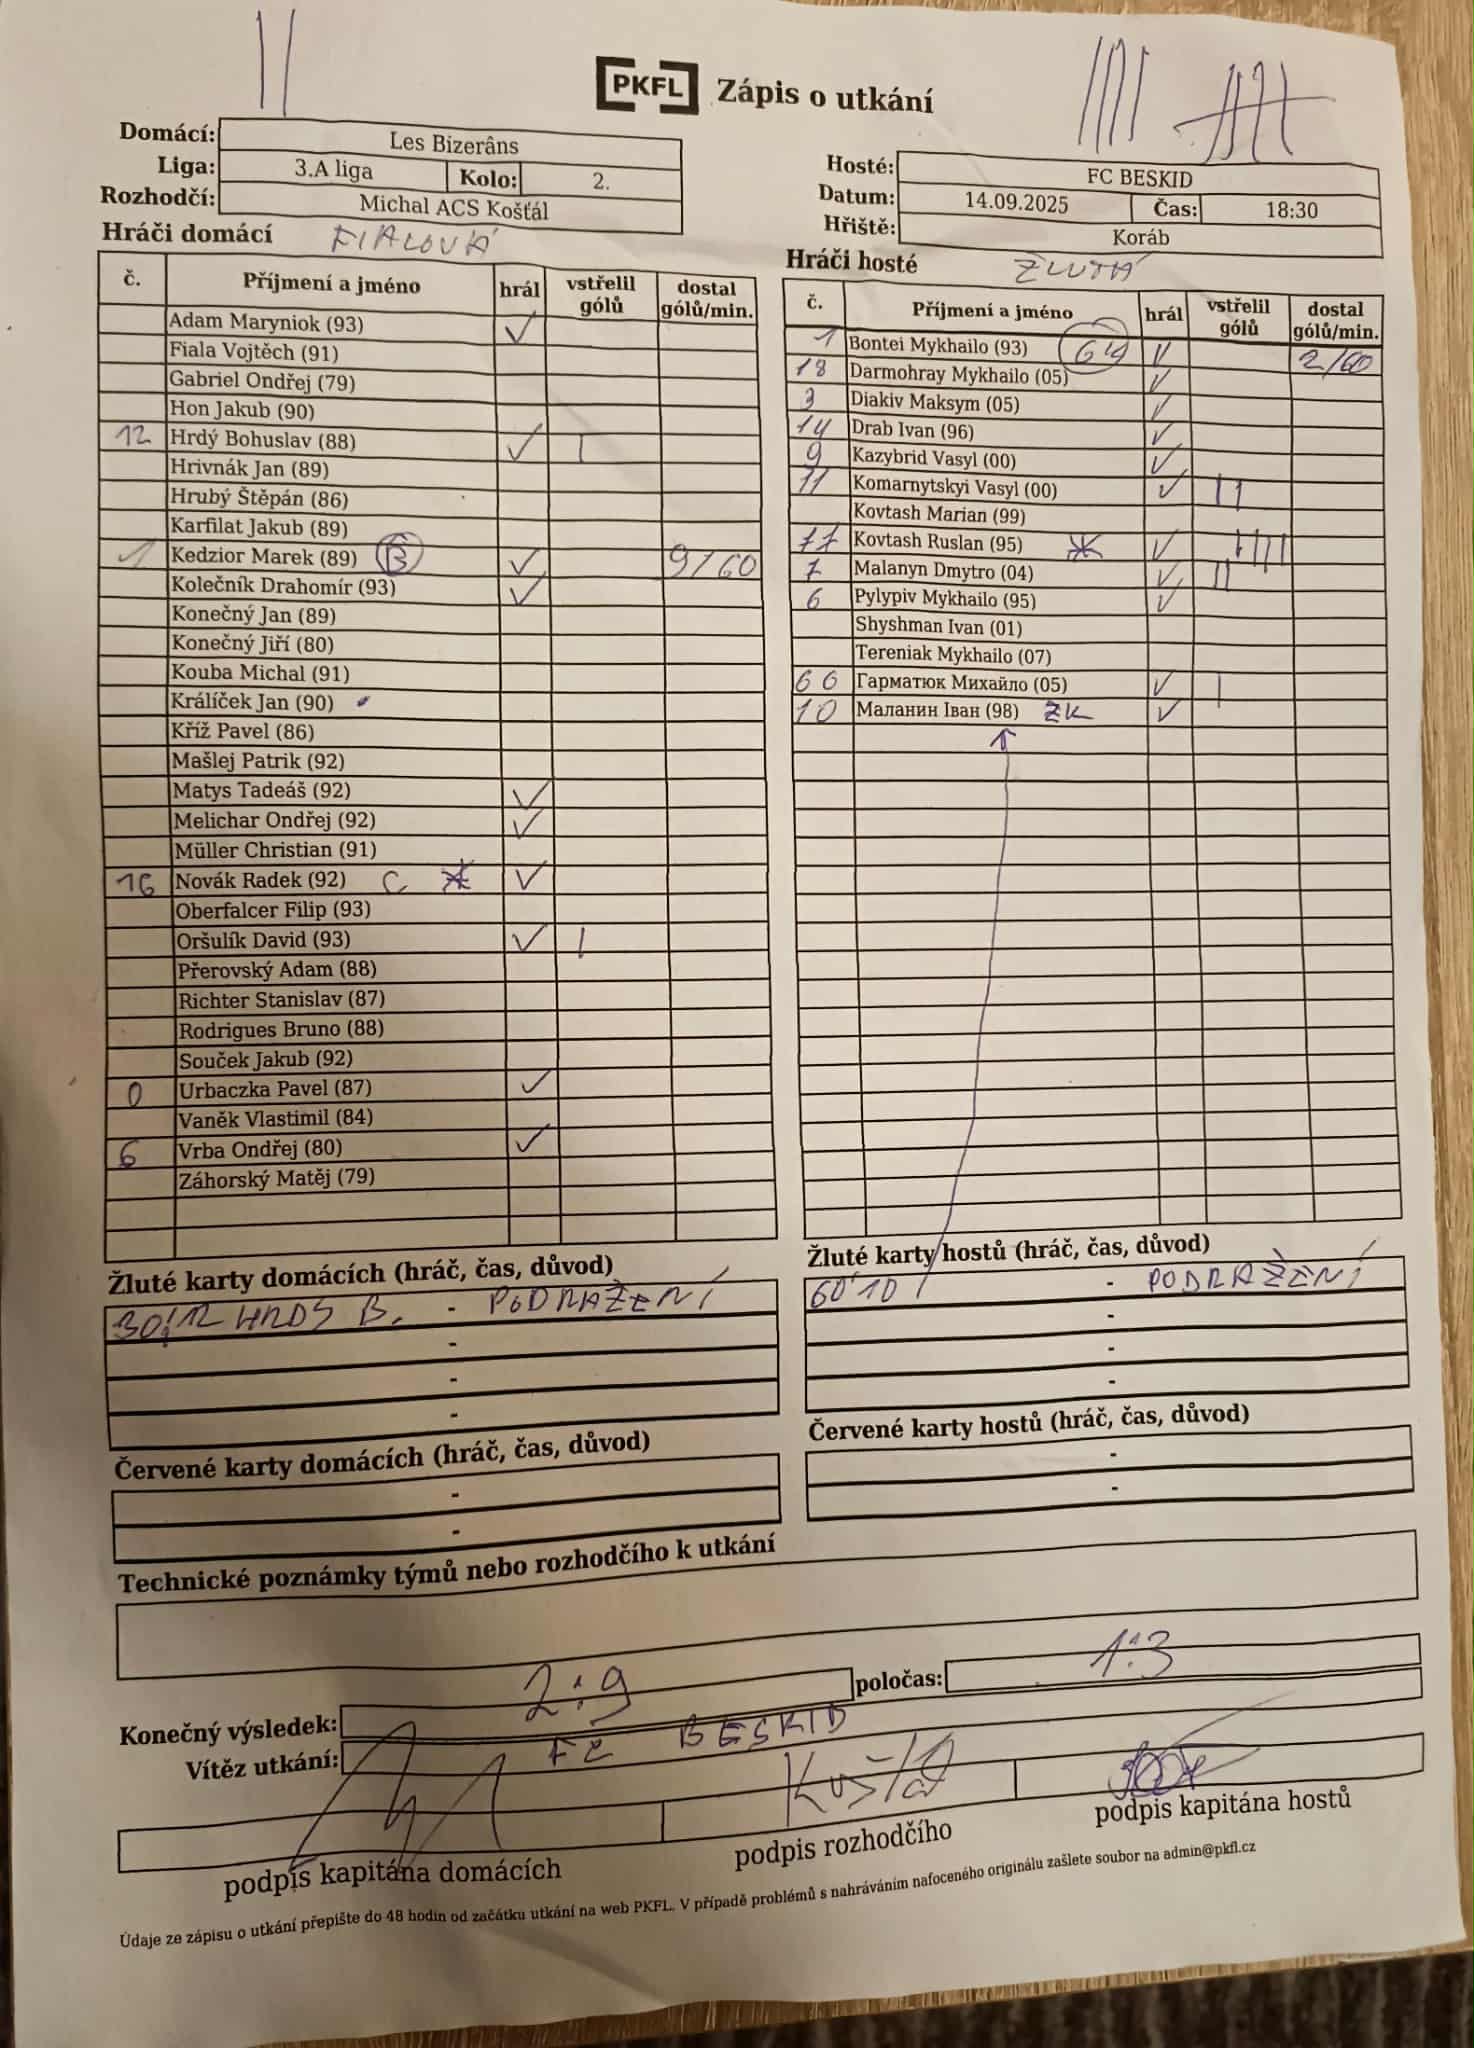 PKFL Zápis o utkání
Domácí: Les Bizerâns
Liga: 3.A liga Kolo: 2.
Rozhodčí: Michal ACS Košťál
Hosté: FC BESKID
Datum: 14.09.2025 Čas: 18:30
Hřiště: Koráb
Hráči domácí FIALOVÁ
č. Příjmení a jméno hrál vstřelil gólů dostal gólů/min.
Adam Maryniok (93) ✓
Fiala Vojtěch (91)
Gabriel Ondřej (79)
Hon Jakub (90)
12 Hrdý Bohuslav (88) ✓ |
Hrivnák Jan (89)
Hrubý Štěpán (86)
Karfilat Jakub (89)
1 Kedzior Marek (89) B ✓ 9/60
Kolečník Drahomír (93) ✓
Konečný Jan (89)
Konečný Jiří (80)
Kouba Michal (91)
Králíček Jan (90)
Kříž Pavel (86)
Mašlej Patrik (92)
Matys Tadeáš (92) ✓
Melichar Ondřej (92) ✓
Müller Christian (91)
16 Novák Radek (92) C ✓
Oberfalcer Filip (93)
Oršulík David (93) ✓ |
Přerovský Adam (88)
Richter Stanislav (87)
Rodrigues Bruno (88)
Souček Jakub (92)
0 Urbaczka Pavel (87) ✓
Vaněk Vlastimil (84)
6 Vrba Ondřej (80) ✓
Záhorský Matěj (79)
Hráči hosté ŽLUTÁ
č. Příjmení a jméno hrál vstřelil gólů dostal gólů/min.
1 Bontei Mykhailo (93) ✓ 2/60
18 Darmohray Mykhailo (05) ✓
3 Diakiv Maksym (05) ✓
14 Drab Ivan (96) ✓
9 Kazybrid Vasyl (00) ✓
11 Komarnytskyi Vasyl (00) ✓ ||
Kovtash Marian (99)
77 Kovtash Ruslan (95) ✓ ||||
7 Malanyn Dmytro (04) ✓ ||
6 Pylypiv Mykhailo (95) ✓
Shyshman Ivan (01)
Tereniak Mykhailo (07)
66 Гарматюк Михайло (05) ✓ |
10 Маланин Іван (98) ŽK ✓
Žluté karty domácích (hráč, čas, důvod)
30' 12 HRDÝ B. - PODRAŽENÍ
-
-
-
Žluté karty hostů (hráč, čas, důvod)
60' 10 - PODRAŽENÍ
-
-
-
Červené karty domácích (hráč, čas, důvod)
-
-
Červené karty hostů (hráč, čas, důvod)
-
-
Technické poznámky týmů nebo rozhodčího k utkání
Konečný výsledek: 2:9 poločas: 1:3
Vítěz utkání: FC BESKID
Košťál
podpis kapitána domácích podpis rozhodčího podpis kapitána hostů
Údaje ze zápisu o utkání přepište do 48 hodin od začátku utkání na web PKFL. V případě problémů s nahráváním nafoceného originálu zašlete soubor na admin@pkfl.cz